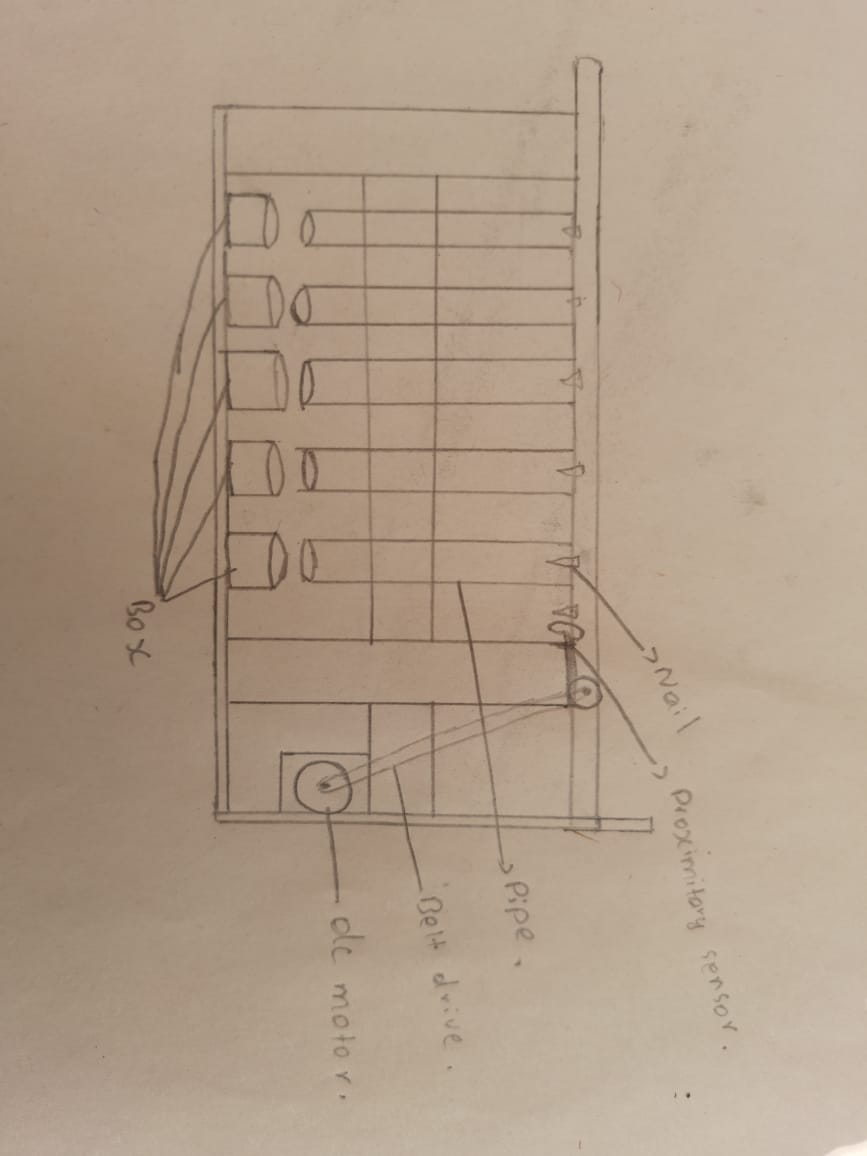 Nail
Proximitory sensor.
Pipe.
Belt drive.
dc motor.
Box